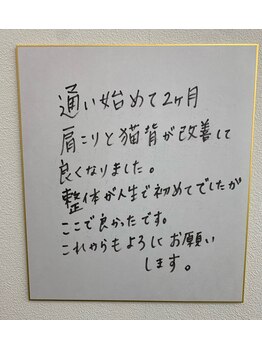 通い始めて2ヶ月
肩こりと猫背が改善して
良くなりました。
整体が人生で初めてでしたが
ここで良かったです。
これからもよろしくお願い
します。